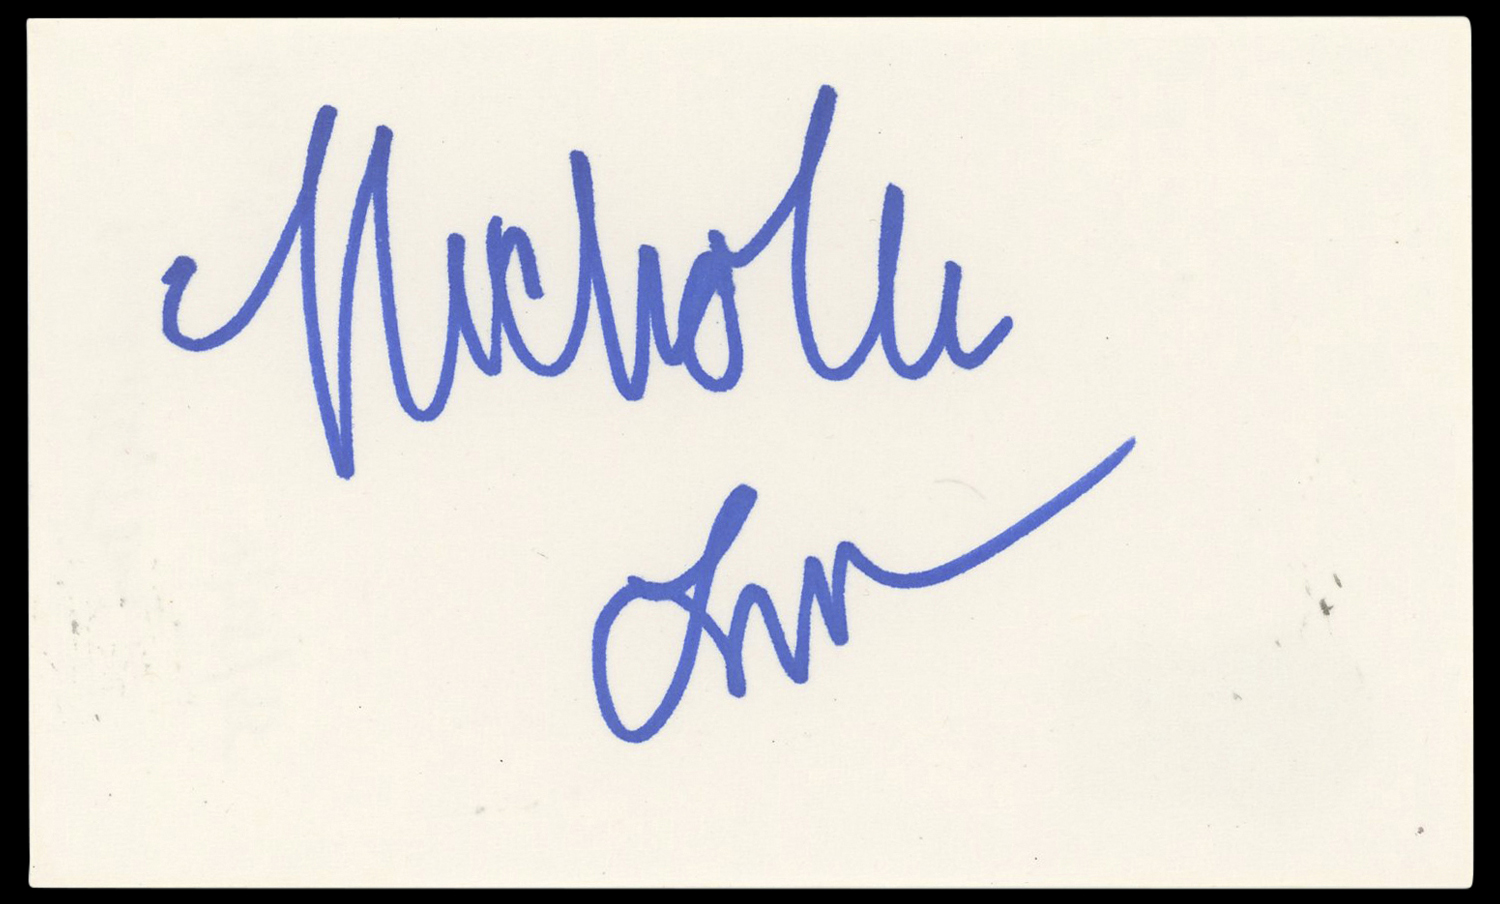 Nicholle
Tom